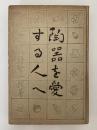 陶器を愛
する人へ